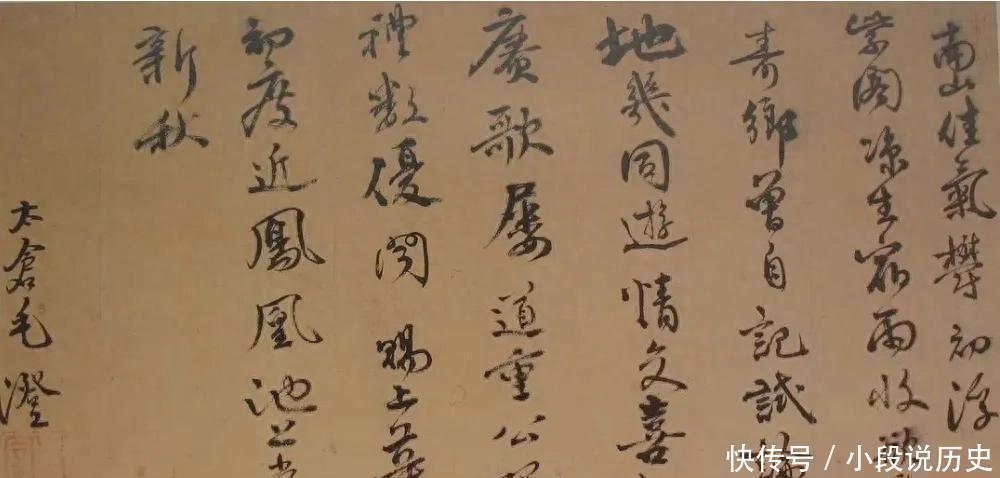 南山佳氣欝初浮
紫閣凉生宿雨收
壽鄉曾自記試
地幾同遊情文喜
賡歌屢道重公
禮數優聞賜上
初度近鳳凰池上
新秋
太倉毛澄
快传号 / 小段说历史